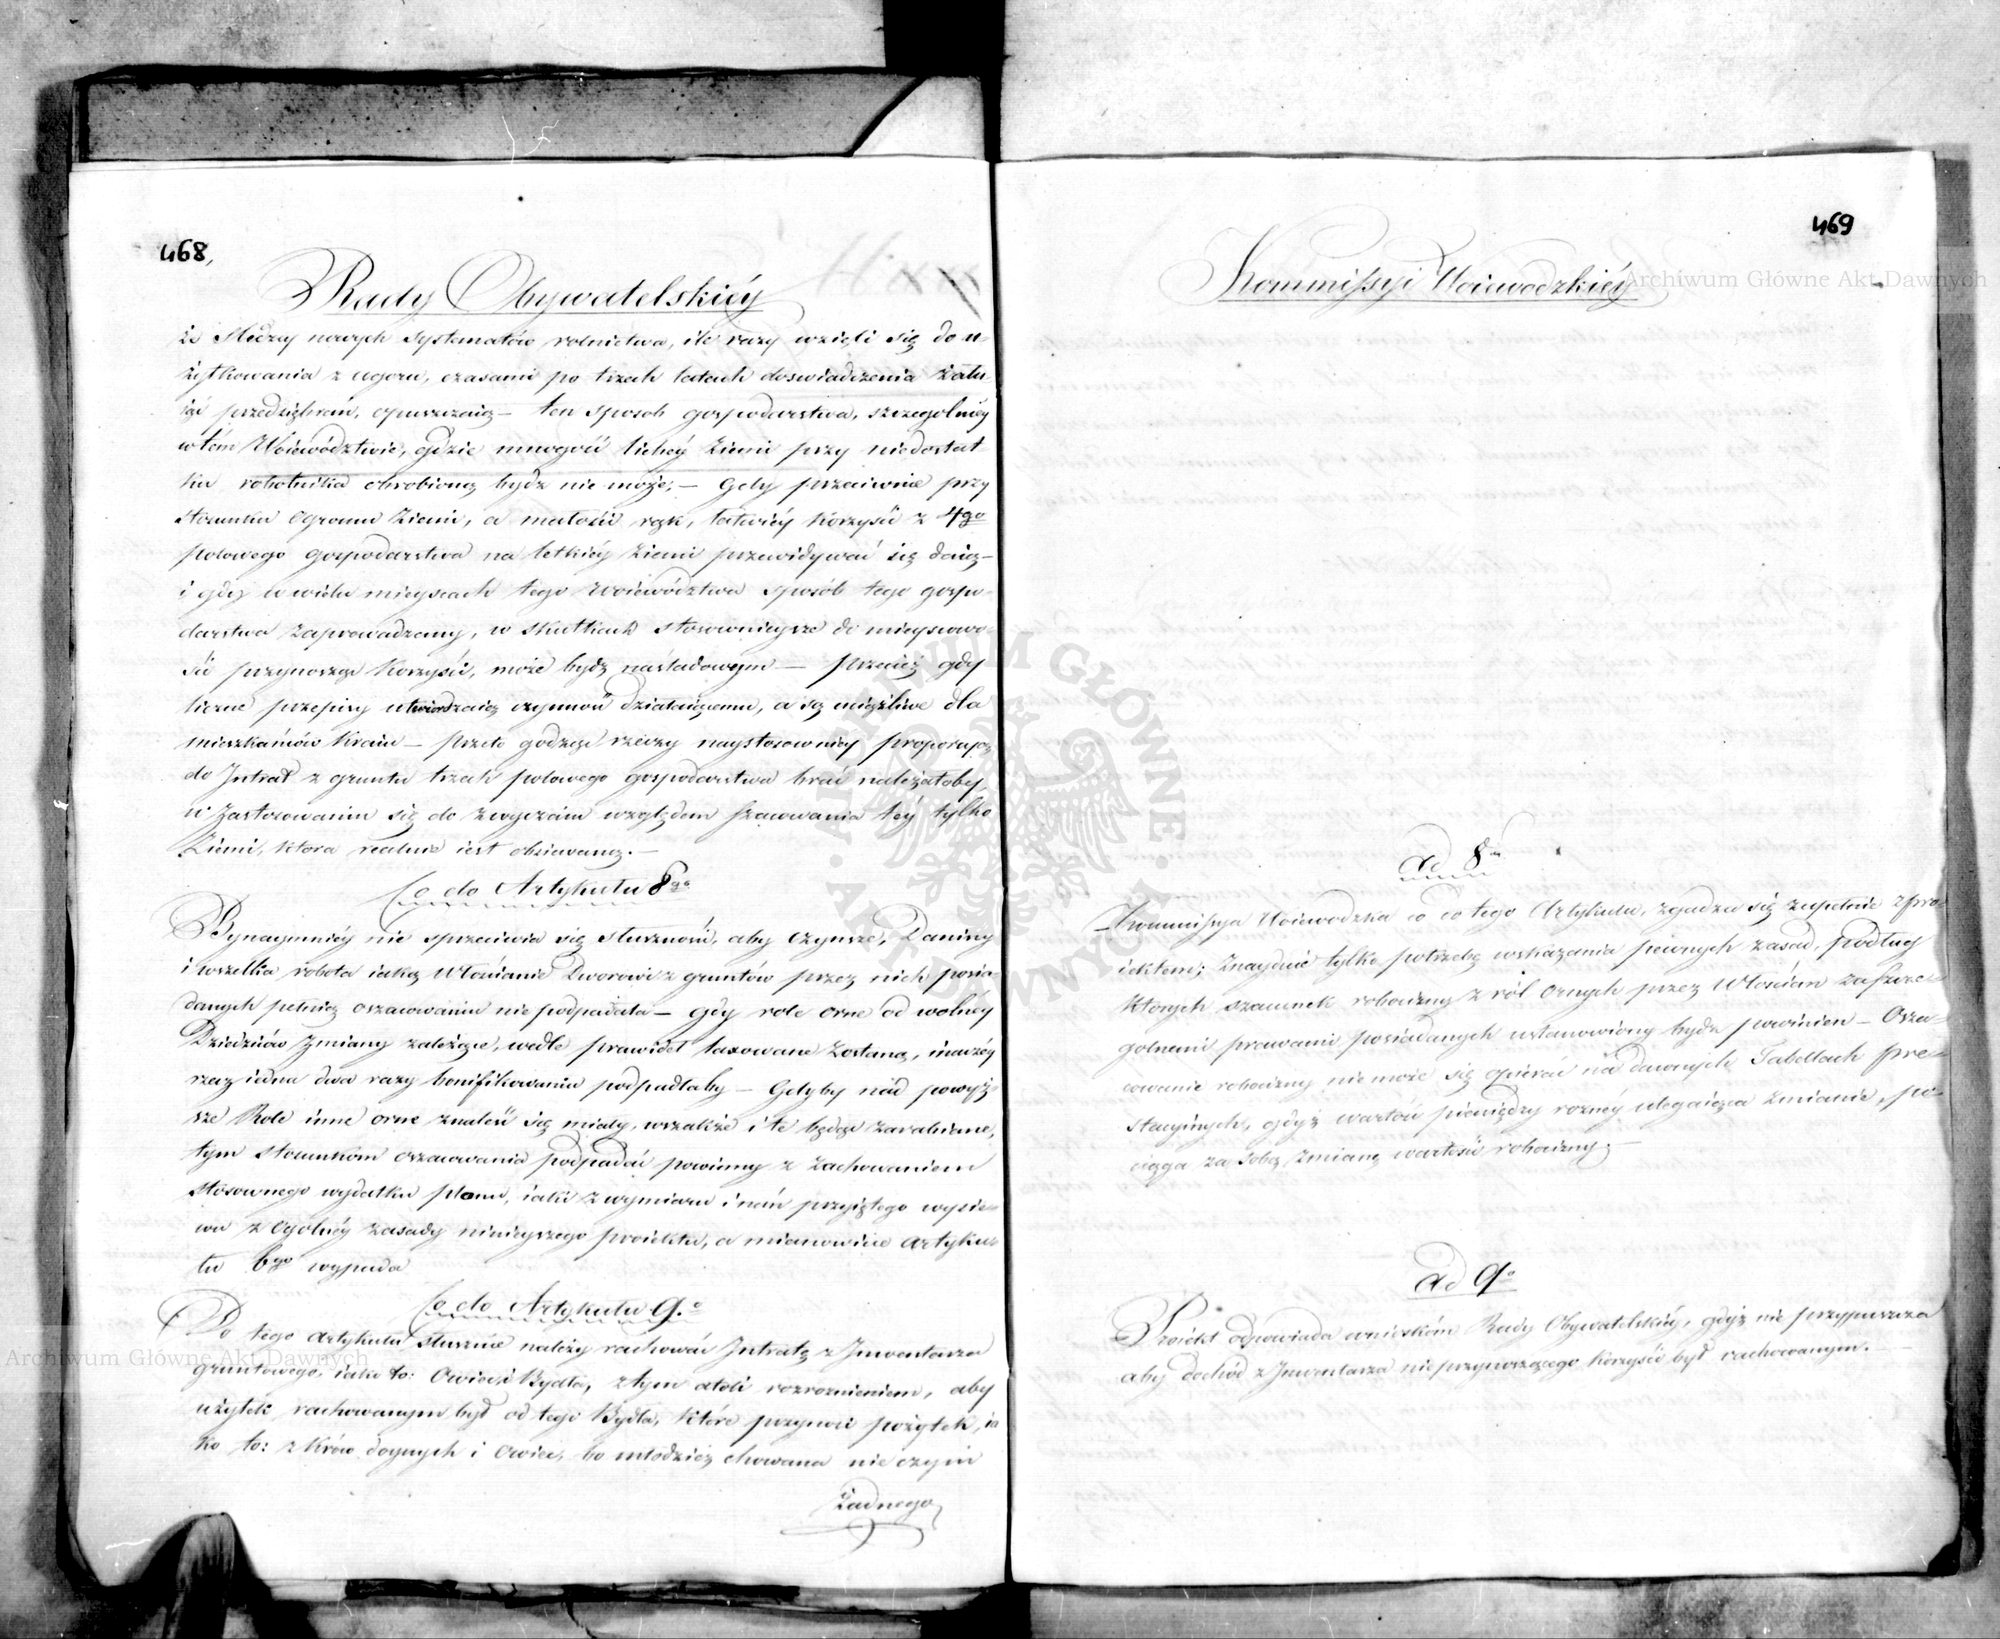 468,
Rady Obywatelskiéy
że śledząc nowych systematów rolnictwa, ile razy wzięli się do u-
żytkowania z ugoru, czasami po trzech latach doswiadczenia żału-
iąc przedsięhrań, opuszczaią — ten sposob gospodarstwa, szczegolniéy
w tém Woiewództwie, gdzie mnogość lichéy ziemi przy niedostat-
ku robotnika obrobioną bydź nie może; — Gdy przeciwnie przy
stosunku ogromu ziemi, a małości rąk, łatwiéy korzyść z 4go
polowego gospodarstwa na letkiéy ziemi przewidywać się daią —
i gdy w wielu mieyscach tego Woiewództwa sposób tego gospo-
darstwa zaprowadzony, w skutkach stosownieysze do mieyscowo-
ści przynosząc korzyści, może bydź naśladowanym — przecież gdy
liczne przepisy utwierdzaią czynność działaiącemu, a są uciążliwe dla
mieszkańców Kraiu — przeto godząc rzeczy naystosowniéy proporcyą
do Intrat z gruntu trzech polowego gospodarstwa brać należałoby,
w zastosowaniu się do zwyczaiu względem szacowania téy tylko
Ziemi, ktora realnie iest obsiewaną. —
Co do Artykułu 8go
Bynaymniéy nie sprzeciwia się słuszność, aby Czynsze, Daniny
i wszelka robota iaką Włościanie Dworowi z gruntów przez nich posia-
danych pełnią oszacowaniu nie podpadała — gdy role orne od wolnéy
Dziedziców zmiany zależące, wedle prawideł taxowane zostaną, inaczéy
rzecz iedna dwa razy bonifikowaniu podpadłaby — Gdyby nad powyż-
sze Role inne orne znaleść się miały, wszakże i te będąc zarabiane,
tym stosunkom oszacowania podpadać powinny z zachowaniem
stósownego wydatku plonu, iaki z wymiaru i nań przyiętego wysie-
wu z ogolnéy zasady ninieyszego proiektu, a mianowicie Artyku-
łu 6go wypada
Co do Artykułu 9.o
Do tego artykułu słusznie należy rachować Intratę z Inwentarza
gruntowego, iako to: Owiec i Bydła, z tym atoli rozroznieniem, aby
użytek rachowanym był od tego Bydła, które przynosi pożytek, ia
ko to: z Krów doynych i Owiec, bo młodzież chowana nie czyni
żadnego
469
Kommissyi Woiewodzkiéy
ad 8um
Kommissya Woiewodzka co do tego Artykułu, zgadza się zupełnie z pro-
iektem; Znayduie tylko potrzebę wskazania pewnych zasad, podług
ktorych szacunek robocizny z ról Ornych przez Włościan za szcze-
golnemi prawami posiadanych ustanowiony bydź powinien — Osza-
cowanie robocizny nie może się opierać na dawnych Tabellach pre-
stacyinych, gdyż wartość pieniędzy roznéy ulegaiąca zmianie, po-
ciąga za sobą zmianę wartości robocizny; —
ad 9o
Proiekt odpowiada wnioskóm Rady Obywatelskiéy, gdyż nie przypuszcza
aby dochód z Inwentarza nieprzynoszącego korzyści był rachowanym. —